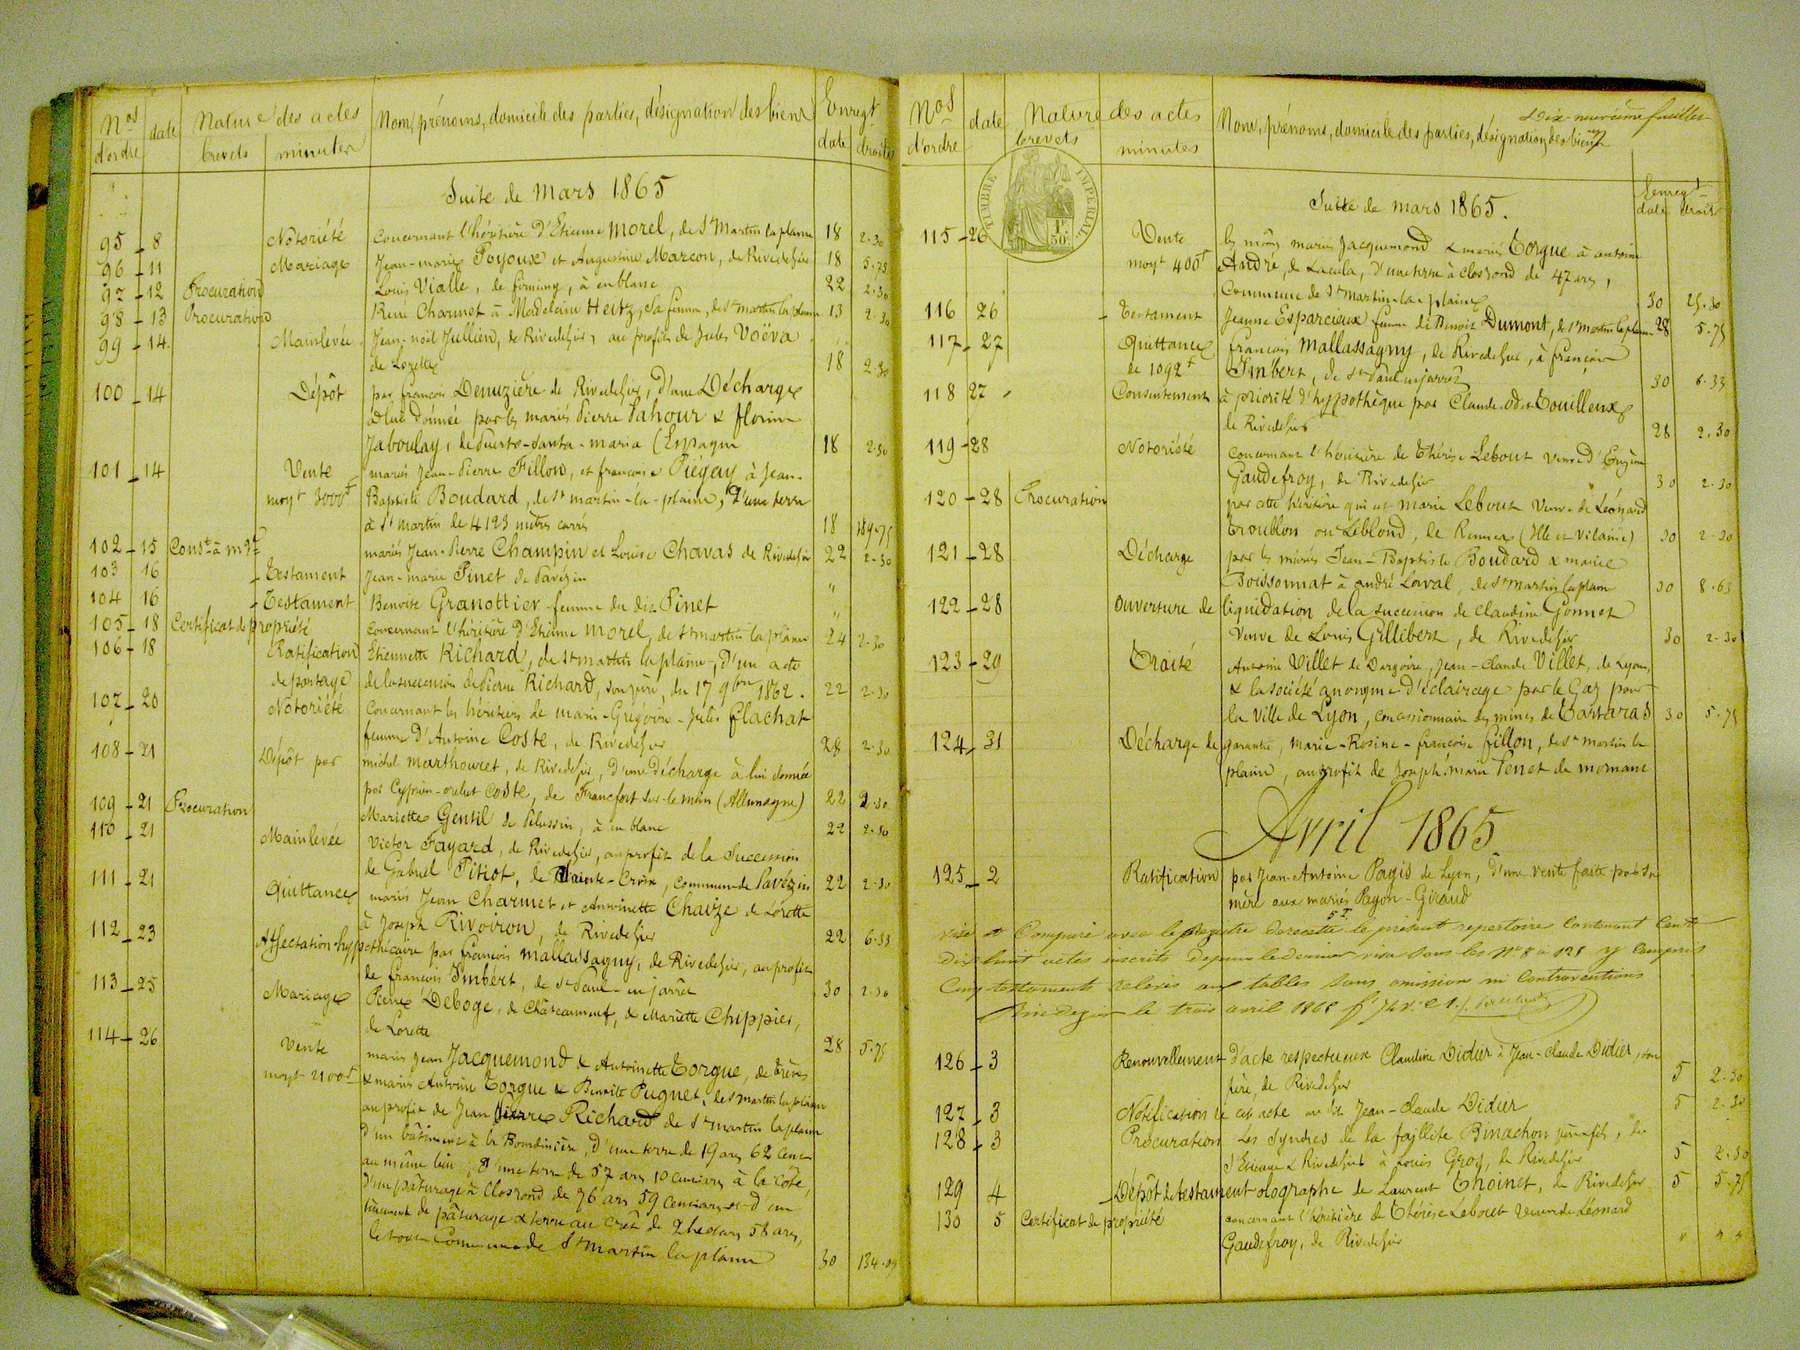 Nos d'ordre date Nature des actes Nom, prénoms, domicile des parties, désignation des biens Enregt
brevets minutes date droits
Suite de Mars 1865
95 - 8 Notoriété Concernant l'héritière d'Etienne Morel, de St Martin la plaine 18 2.30
96 - 11 Mariage Jean-marie Poyoux et Augustine Marcon, de Rivedegier 18 5.75
97 - 12 Procuration Louis Vialle, de firminy, à en blanc 22 2.30
98 - 13 Procuration Rene Charmet à Madelaine Heitz, sa femme, de St martin la plaine 13 2.30
99 - 14 Mainlevée Jean-noël Jullien, de Rivedegier, au profit de Jules Voëva
de Lorette 18 2.30
100 - 14 Dépôt par françois Demizière de Rivedegier, d'une Décharge
à lui donnée par les mariés Pierre Pahour & florine
Jaboulay, de Puerto-Santa-maria (Espagne 18 2.30
101 - 14 Vente mariés Jean-Pierre Fillon, et françoise Piégay, à Jean-
moyt 3000f Baptiste Boudard, de St martin-la-plaine, d'une terre
à St Martin de 4193 mètres carrés 18 189.75
102 - 15 Const. à mge mariés Jean-Pierre Champin et Louise Chavas de Rivedegier 22 2.30
103 16 - Testament Jean-marie Pinet de Pavézin "
104 16 - Testament Benoite Granottier femme du dit Pinet "
105 - 18 Certificat de propriété Concernant l'héritière d'Etienne Morel, de St martin la plaine 24 2.30
106 - 18 Ratification Etiennette Richard, de St martin la plaine, d'un acte
de partage de la succession de Pierre Richard, son père, du 17 9bre 1862. 22 2.30
107 - 20 Notoriété Concernant les héritiers de marie-Grégoire-Julie flachat
femme d'Antoine Coste, de Rivedegier 28 2.30
108 - 21 Dépôt par michel marthouret, de Rivedegier, d'une décharge à lui donnée
par Cyprien-orelut Coste, de Francfort sur-le mein (Allemagne) 22 2.30
109 - 21 Procuration Mariette Gentil de Pelussin, à en blanc 22 2.30
110 - 21 Mainlevée Victor Fayard, de Rivedegier, au profit de la Succession
de Gabriel Pitiot, de Sainte-Croix, commune de Pavézin 22 2.30
111 - 21 Quittance mariés Jean Charmet et Antoinette Chaize de Lorette
à Joseph Rivoiron, de Rivedegier 22 6.33
112 - 23 Affectation hypothécaire par françois mallassagny, de Rivedegier, au profit
de françois Imbert, de St Paul-en jarrêt 30 2.30
113 - 25 Mariage Pierre Deboge, de Châteauneuf, & Mariette Chippier,
de Lorette 28 5.75
114 - 26 Vente mariés Jean Jacquemond & Antoinette Torgue, de Trèves
moyt 2100f & mariés Antoine Torgue & Benoite Pugnet, de St martin la plaine
au profit de Jean Pierre Richard de St martin la plaine
d'un bâtiment à la Bourdinière, d'une terre de 19 ares 62 cent.
au même lieu, d'une terre de 57 ares 10 centiares à la côte,
d'un pâturage à Closrond de 76 ares 59 centiares et d'un
tènement de pâturage & terre au crêt de 2 hectares 58 ares,
le tout Commune de St Martin la plaine 30 134.09
Dix-neuvième feuillet
Nos d'ordre date Nature des actes Nom, prénoms, domicile des parties, désignation des biens
brevets minutes Enregt date droits
TIMBRE IMPERIAL 1F. 50c
Suite de mars 1865.
115 - 26 Vente les mêmes mariés Jacquemond & mariés Torgue à antoine
moyt 400f André, de Lacula, d'une terre à closrond de 47 ares,
Commune de St Martin-la-plaine 30 25.30
116 26 - Testament Jeanne Esparcieux femme de Benoit Dumont, de St martin la plaine 28 5.75
117 - 27 Quittance françois Mallassagny, de Rivedegier, à françois
de 1092f Imbert, de St Paul en jarrêt 30 6.33
118 27 Consentement à priorité d'hypothèque par Claude-odet Touilleux
de Rivedegier 28 2.30
119 - 28 Notoriété Concernant l'héritière de Thérèse Lebout Veuve d'Eugène
Gaudefroy, de Rivedegier 30 2.30
120 - 28 Procuration par cette héritière qui est Marie Lebout Veuve de Léonard
Troublon ou Leblond, de Rennes (Ille et Vilaine) 30 2.30
121 - 28 Décharge par les mariés Jean-Baptiste Boudard & marie
Boissonnat à andré Laval, de St martin la plaine 30 8.63
122 - 28 Ouverture de liquidation de la succession de Claudine Gonnet
Veuve de Louis Gillibert, de Rivedegier 30 2.30
123 - 29 Traité Antoine Villet de Dargoire, Jean-Claude Villet, de Lyon,
& la société anonyme d'éclairage par le Gaz pour
la Ville de Lyon, concessionnaire des mines de Tartaras 30 5.75
124 - 31 Décharge de garantie, Marie-Rosine-françoise fillon, de St martin la
plaine, au profit de Joseph-marie Venet de mornant
Avril 1865
125 - 2 Ratification par Jean-Antoine Pagis de Lyon, d'une vente faite par sa
mère aux mariés Payon-Giraud
Visé et Comparé avec le registre de recette le présent repertoire contenant Cent
dix huit actes inscrits depuis le dernier visa sous les Nos 8 à 125 y compris
Cinq testaments relevés aux tables sans omission ni contraventions
Rive de gier le trois avril 1865
126 - 3 Renouvellement d'acte respectueux Claudine Didier à Jean-claude Didier, son
père, de Rivedegier 5 2.30
127 - 3 Notification de cet acte au dit Jean-claude Didier 5 2.30
128 - 3 Procuration Les Syndics de la faillite Binachon père & fils, de
St Etienne & Rivedegier à Louis Gros, de Rivedegier 5 2.30
129 4 - Dépôt de testament olographe de Laurent Thoinet, de Rivedegier 5 5.75
130 5 Certificat de propriété concernant l'héritière de Thérèse Lebout Veuve de Léonard
Gaudefroy, de Rivedegier " " "